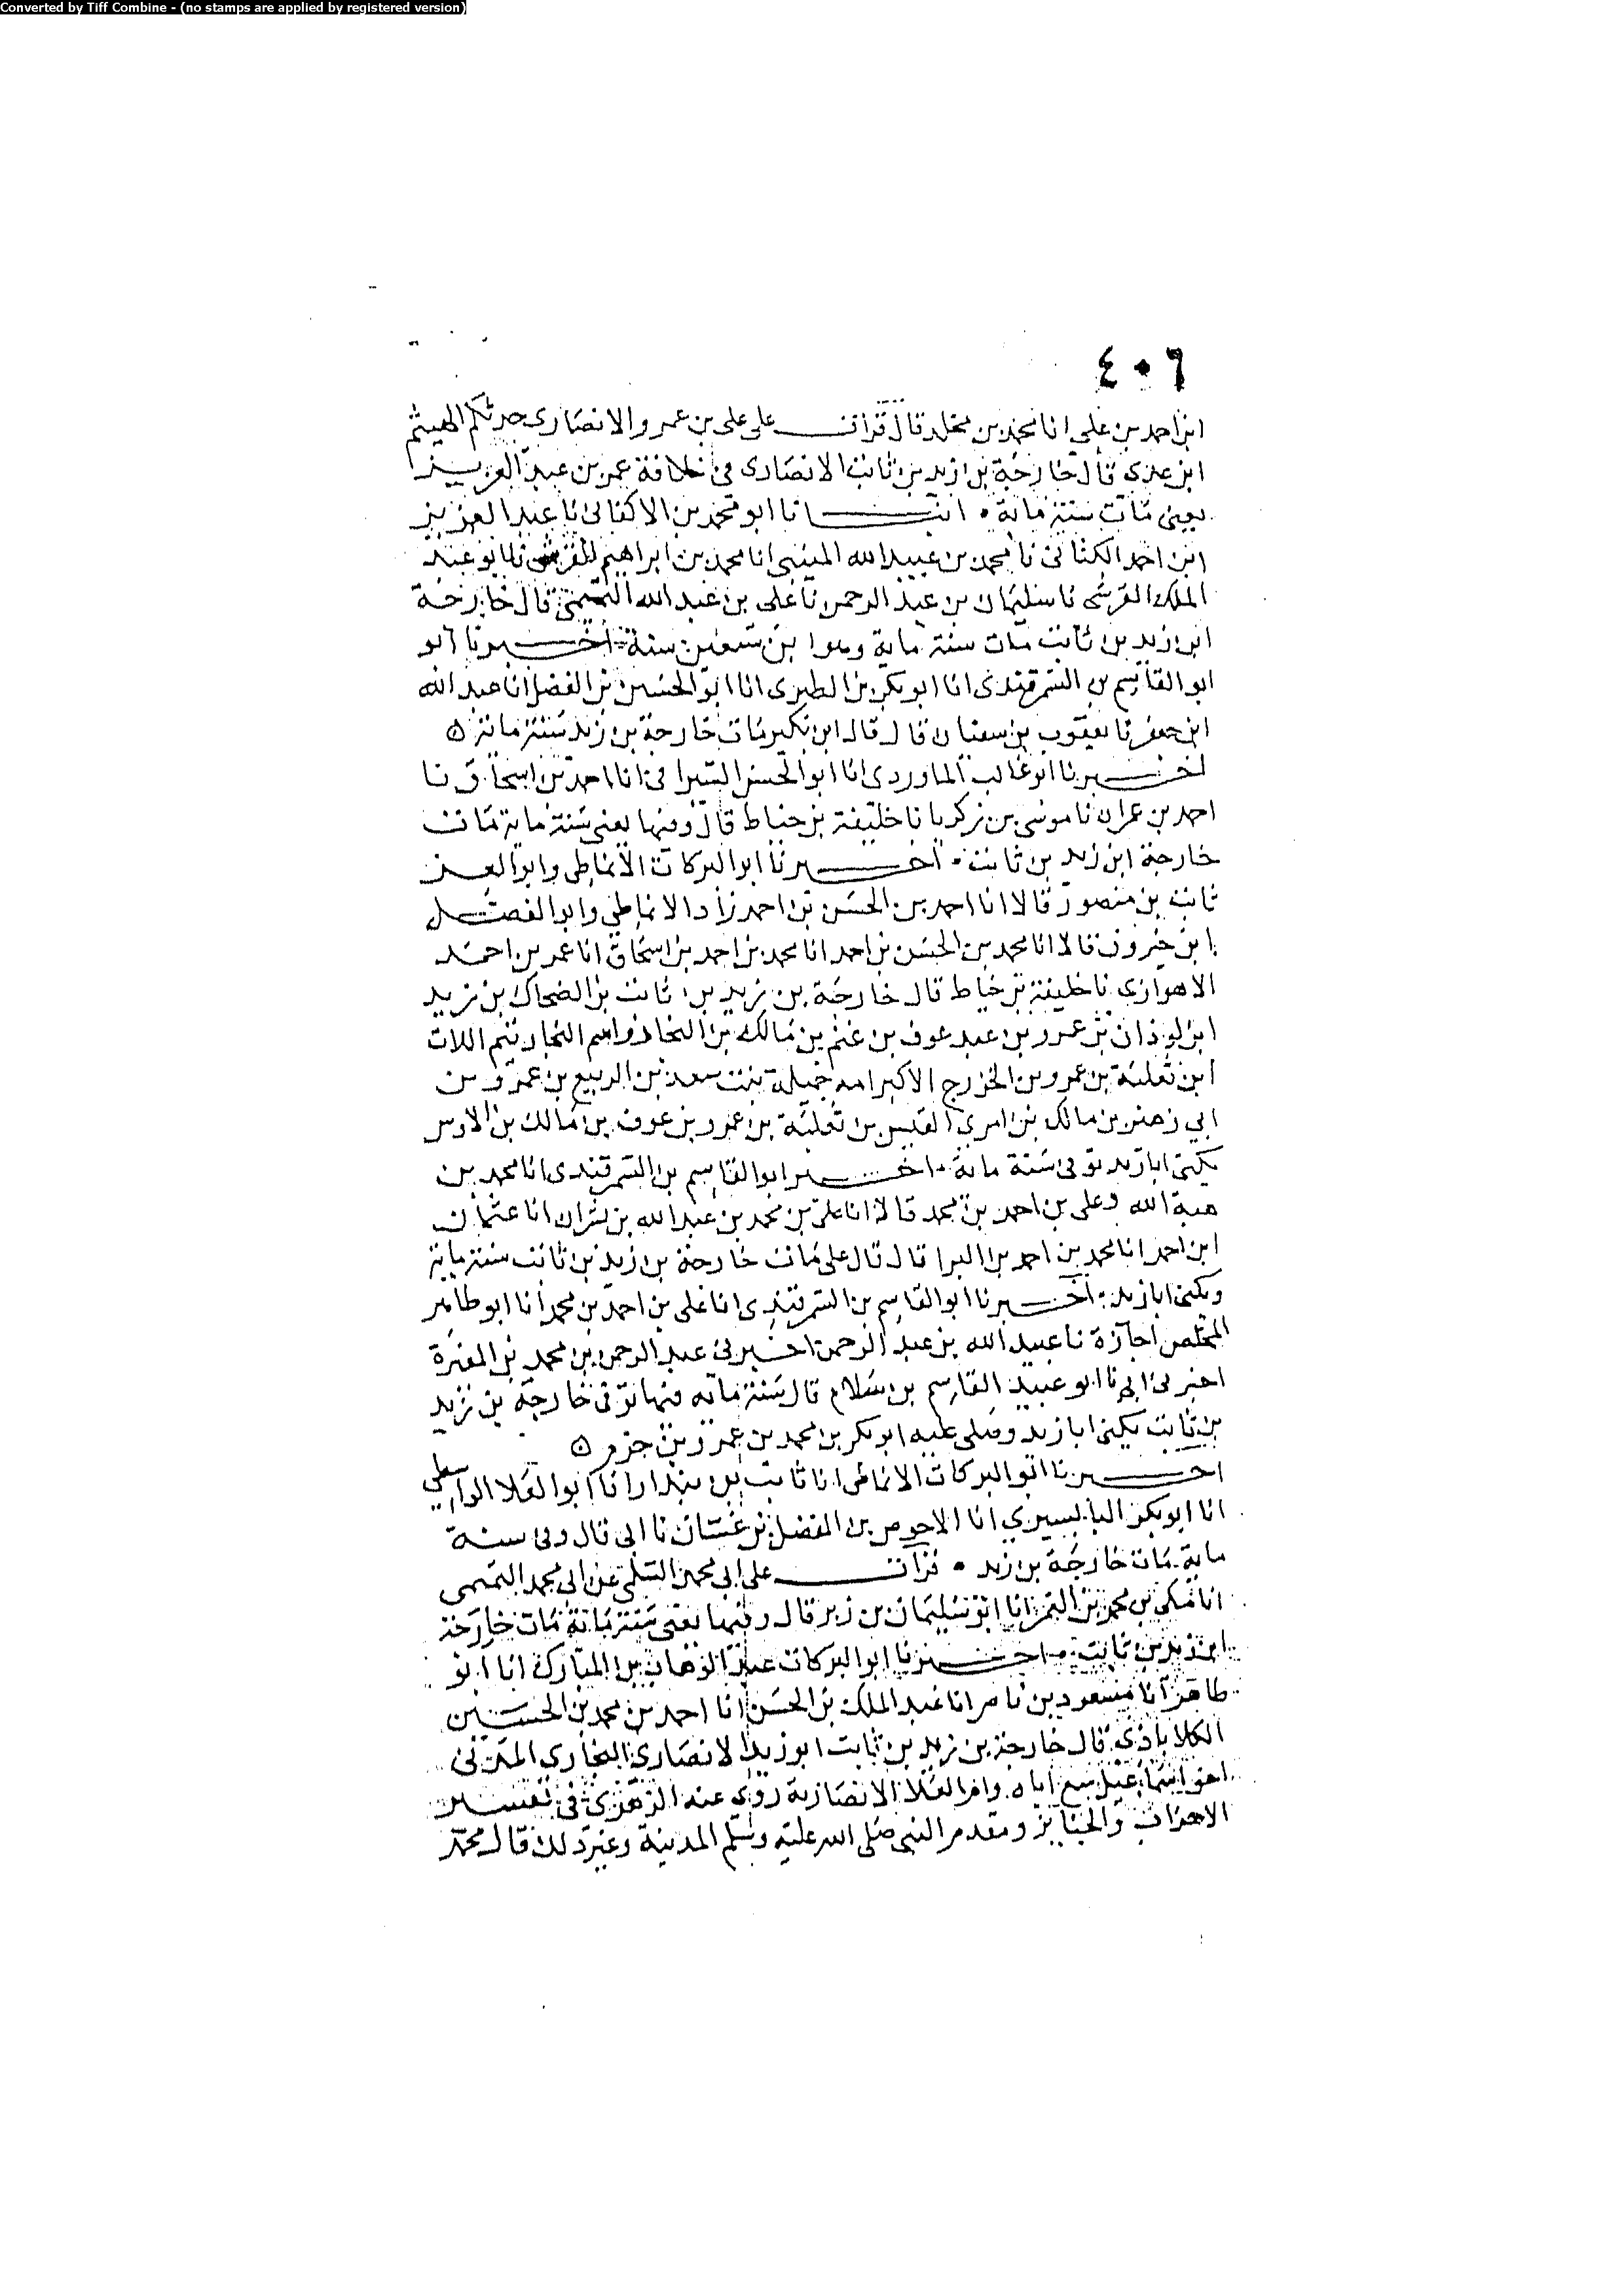 Converted by Tiff Combine - (no stamps are applied by registered version)
٤٠٦
ابن احمد بن علي انا محمد بن مخلد قال قرات على علي بن عمرو الانصارى حدثكم الهيثم
ابن عدى قال خارجة بن زيد بن ثابت الانصارى فى خلافة عمر بن عبد العزيز
يعنى مات سنة ماية • انبانا ابو محمد بن الاكفانى نا عبد العزيز
ابن احمد الكتانى نا محمد بن عبيد الله المنينى انا محمد بن ابراهيم القرشى نا ابو عبد
الملك القرشى نا سليمان بن عبد الرحمن نا على بن عبد الله التميمى قال خارجة
ابن زيد بن ثابت مات سنة ماية وهو ابن سبعين سنة اخبرنا ابو
ابو القاسم بن السمرقندى انا ابو بكر بن الطبرى انا ابو الحسين بن الفضل انا عبد الله
ابن جعفر نا يعقوب بن سفيان قال قال ابن بكير مات خارجة بن زيد سنة ماية ه
اخبرنا ابو غالب الماوردى انا ابو الحسن السيرافى انا احمد بن اسحاق نا
احمد بن عمران نا موسى بن زكريا نا خليفة بن خياط قال وفيها يعنى سنة ماية مات
خارجة ابن زيد بن ثابت • اخبرنا ابو البركات الانماطى وابو العز
ثابت بن منصور قالا انا احمد بن الحسن بن احمد زاد الانماطى وابو الفضل
ابن خيرون قالا انا محمد بن الحسن بن احمد انا محمد بن احمد بن اسحاق انا عمر بن احمد
الاهوازى نا خليفة بن خياط قال خارجة بن زيد بن ثابت بن الضحاك بن زيد
ابن لوذان بن عمرو بن عبد عوف بن غنم بن مالك بن النجار واسم النجار تيم اللات
ابن ثعلبة بن عمرو بن الخزرج الاكبر امه جميلة بنت سعد بن الربيع بن عمرو بن
ابي زهير بن مالك بن امرى القيس بن ثعلبة بن عمرو بن عوف بن مالك بن الاوس
يكنى ابا زيد توفى سنة ماية • اخبر ابو القاسم بن السمرقندى انا محمد بن
هبة الله وعلى بن احمد بن محمد قالا انا على بن محمد بن عبد الله بن بشران انا عثمان
ابن احمد انا محمد بن احمد بن البرا قال قال على مات خارجة بن زيد بن ثابت سنة ماية
ويكنى ابا زيد • اخبرنا ابو القاسم بن السمرقندى انا على بن احمد بن محمد انا ابو طاهر
المخلص اجازة نا عبيد الله بن عبد الرحمن اخبرنى عبد الرحمن بن محمد بن المغيرة
اخبرنى ابى نا ابو عبيد القاسم بن سلام قال سنة ماية فيها توفى خارجة بن زيد
بن ثابت يكنى ابا زيد وصلى عليه ابو بكر بن محمد بن عمرو بن حزم ه
اخبرنا ابو البركات الانماطى انا ثابت بن بندار انا ابو العلا الواسطي
انا ابو بكر البابسيري انا الاحوص بن المفضل بن غسان نا ابى قال وفى سنة
ماية مات خارجة بن زيد • قرات على ابى محمد السلمى عن ابى محمد التميمى
انا مكي بن محمد بن الغمر انا ابو سليمان بن زبر قال وفيها يعنى سنة ماية مات خارجة
ابن زيد بن ثابت • اخبرنا ابو البركات عبد الوهاب بن المبارك انا ابو
طاهر انا مسعود بن ناصر انا عبد الملك بن الحسن انا احمد بن محمد بن الحسين
الكلاباذى قال خارجة بن زيد بن ثابت ابو زيد الانصارى البخارى المدنى
اخو اسماعيل سمع اباه وام العلا الانصارية روى عنه الزهرى فى تفسير
الاحزاب والجنايز ومقدم النبى صلى الله عليه وسلم المدينة وغير ذلك قال محمد